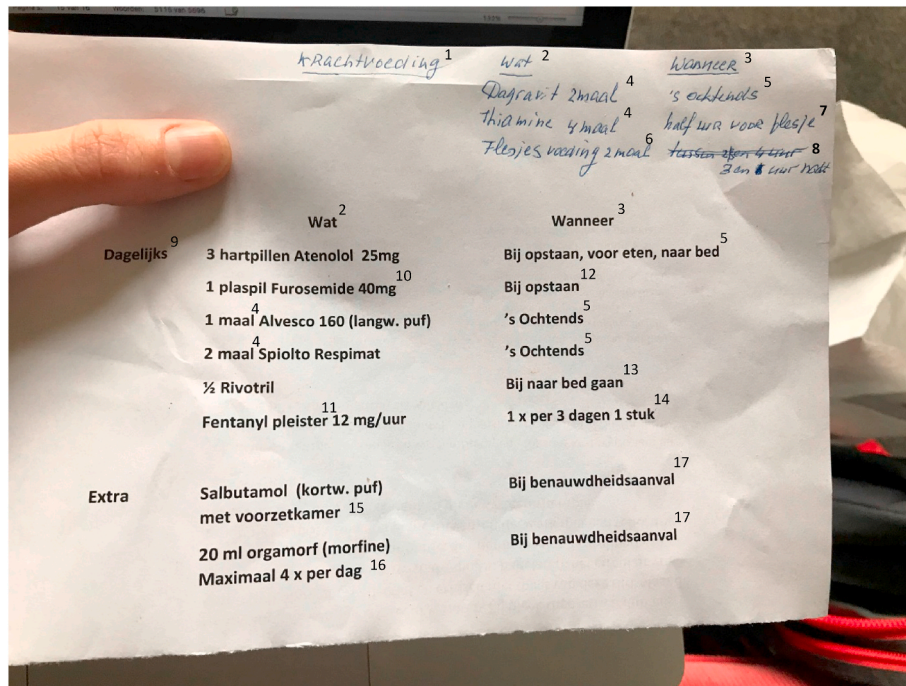 Krachtvoeding 1 Wat 2 Wanneer 3
Dagravit 2maal 4 's ochtends 5
Thiamine 4 maal 4 half uur voor flesje 7
Flesjes voeding 2 maal 6 8
3 en uur nacht
Wat 2 Wanneer 3
Dagelijks 9 3 hartpillen Atenolol 25mg Bij opstaan, voor eten, naar bed 5
1 plaspil Furosemide 40mg 10 Bij opstaan 12
1 maal 4 Alvesco 160 (langw. puf) 's Ochtends 5
2 maal 4 Spiolto Respimat 's Ochtends 5
½ Rivotril Bij naar bed gaan 13
Fentanyl pleister 11 12 mg/uur 1 x per 3 dagen 1 stuk 14
Extra Salbutamol (kortw. puf) Bij benauwdheidsaanval 17
met voorzetkamer 15
20 ml orgamorf (morfine) Bij benauwdheidsaanval 17
Maximaal 4 x per dag 16